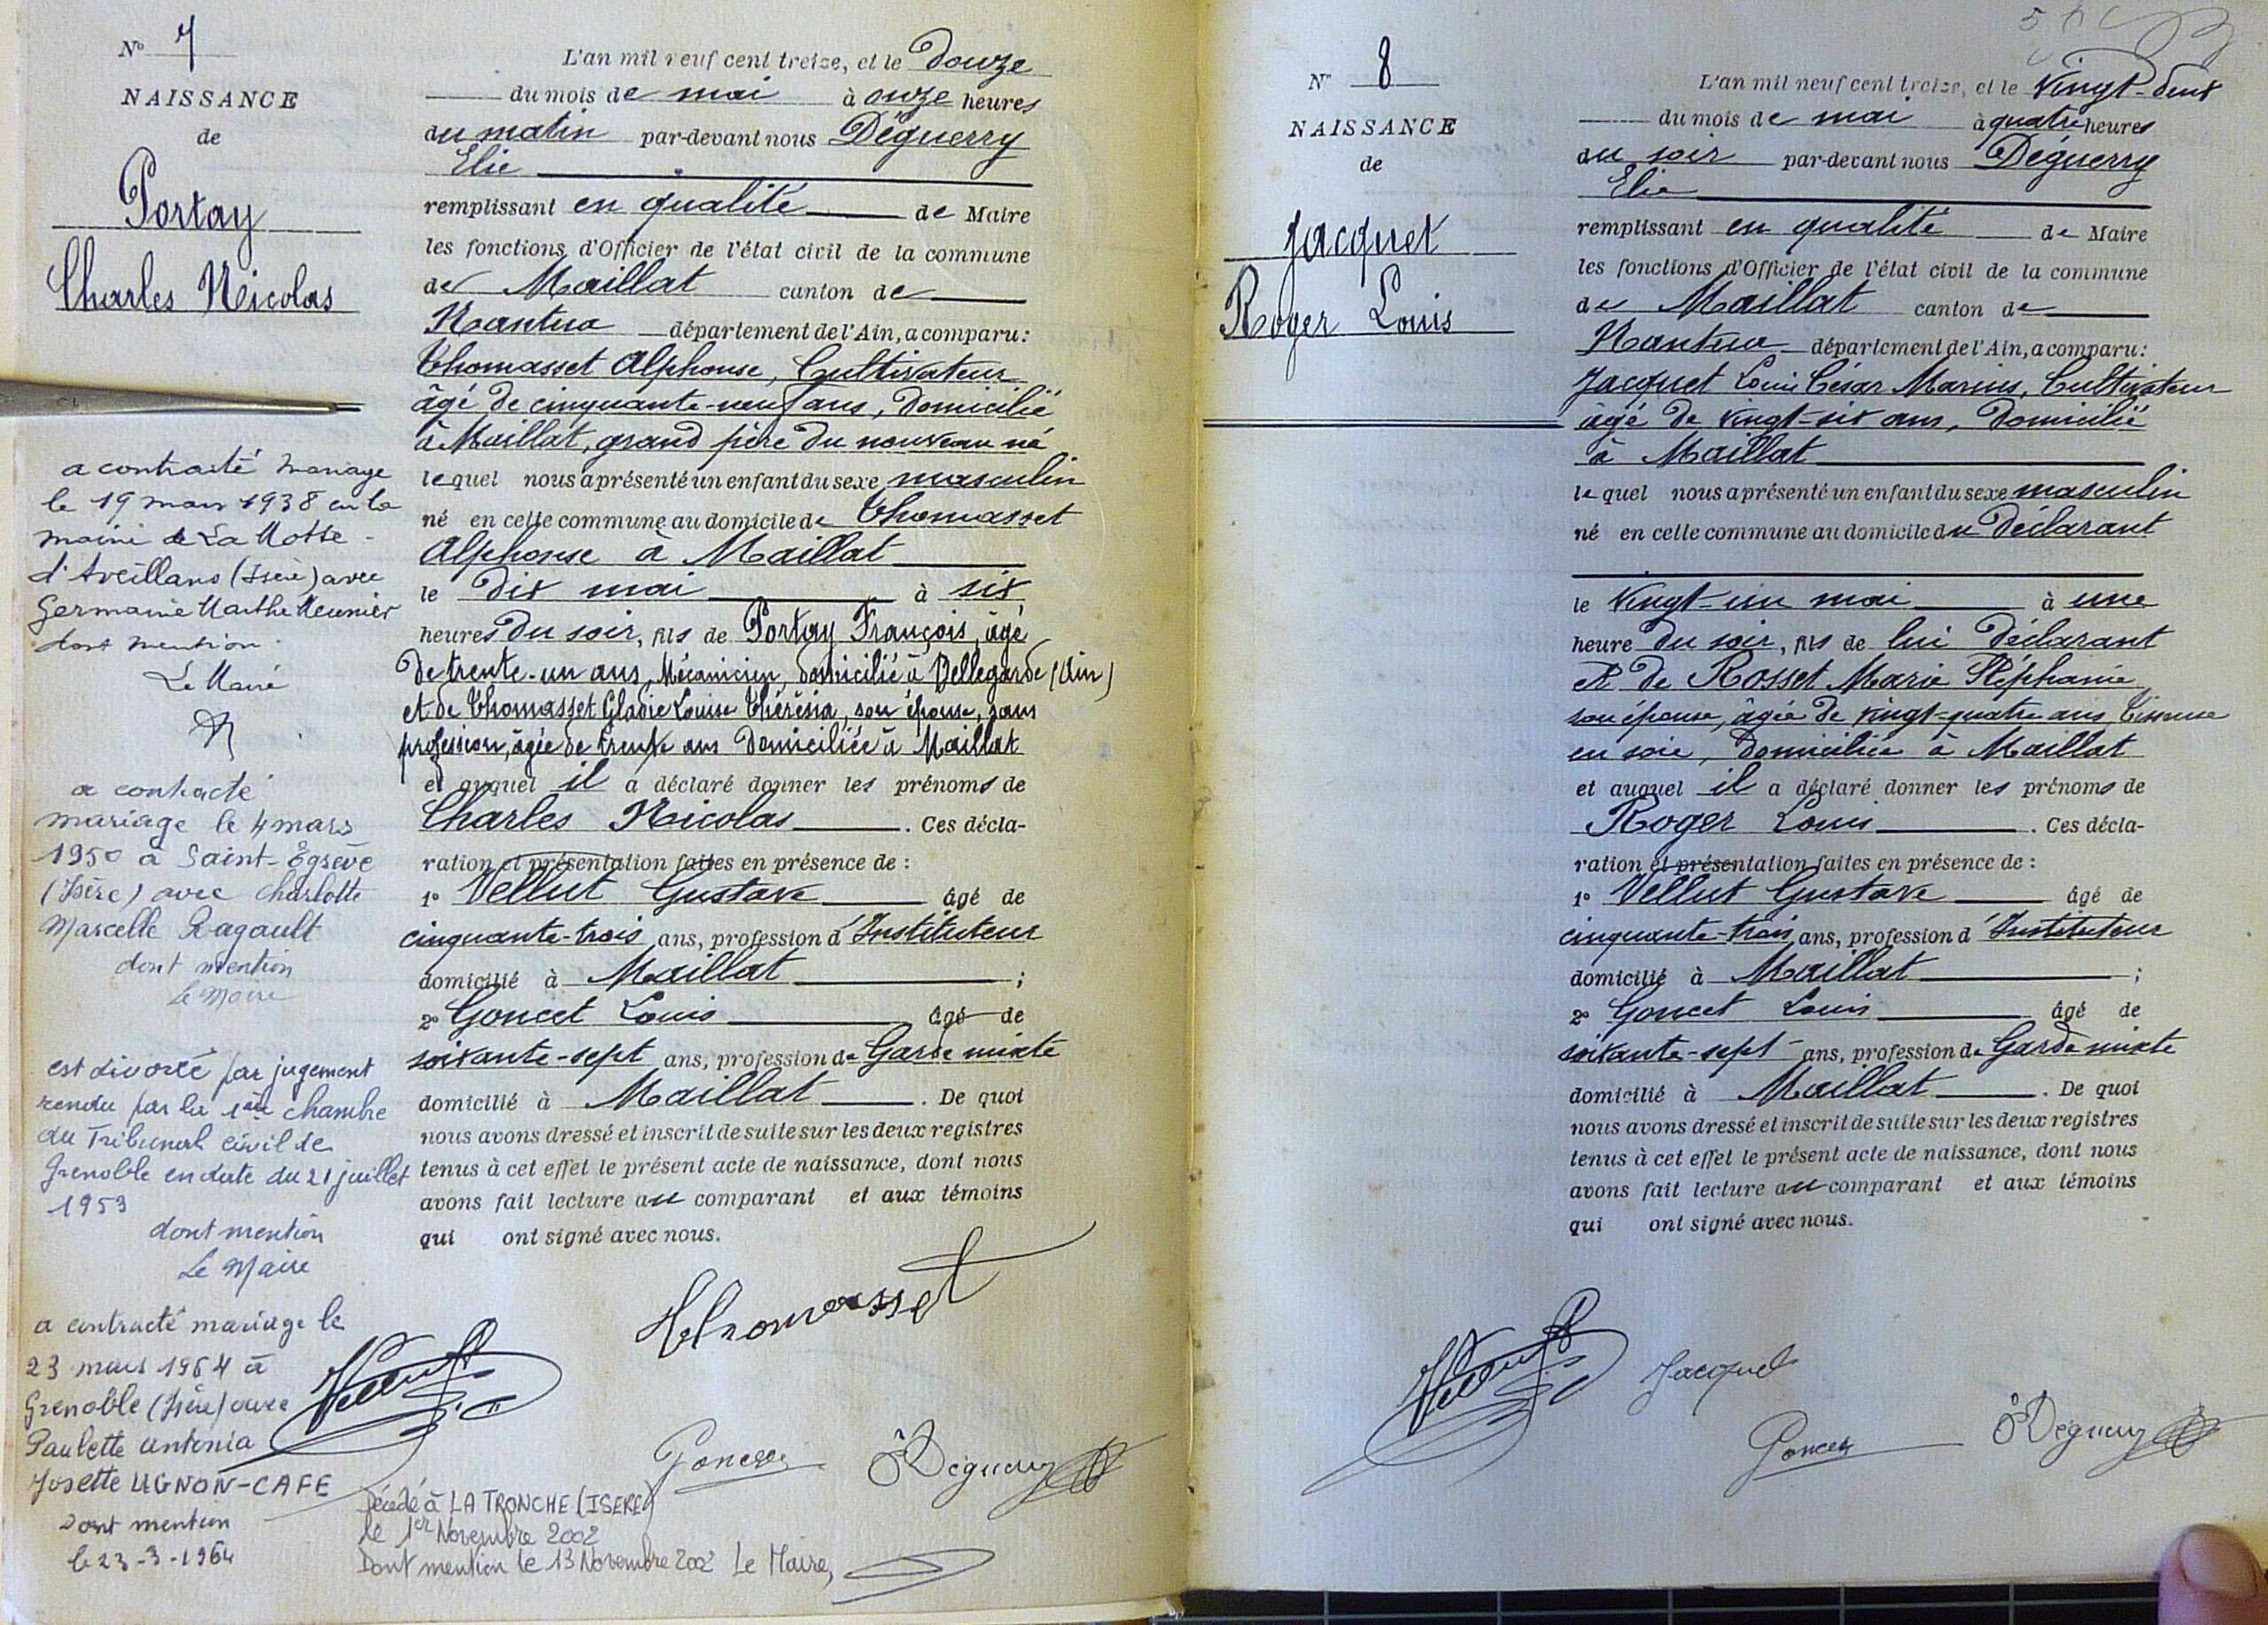 N° 7
NAISSANCE
de
Portay
Charles Nicolas
a contracté mariage
le 19 mars 1938 en la
mairie de La Motte
d'Aveillans (Isère) avec
Germaine Marthe Meunier
dont mention.
Le Maire
a contracté
mariage le 4 mars
1950 à Saint-Egrève
(Isère) avec Charlotte
Marcelle Ragault
dont mention
Le Maire
est divorcé par jugement
rendu par la 1ère chambre
du Tribunal civil de
Grenoble en date du 21 juillet
1953
dont mention
Le Maire
a contracté mariage le
23 mars 1964 à
Grenoble (Isère) avec
Paulette Antonia
Josette UGNON-CAFE
Dont mention
le 23-3-1964
L'an mil neuf cent treize, et le Douze
du mois de mai à onze heures
du matin par-devant nous Déguerry
Elie
remplissant en qualité de Maire
les fonctions d'Officier de l'état civil de la commune
de Maillat canton de
Nantua département de l'Ain, a comparu:
Thomasset Alphonse, Cultivateur
âgé de cinquante-neuf ans, Domicilié
à Maillat, grand père du nouveau né
lequel nous a présenté un enfant du sexe masculin
né en cette commune au domicile de Thomasset
Alphonse à Maillat
le dix mai à six
heures du soir, fils de Portay François, âgé
de trente-un ans, Mécanicien, domicilié à Bellegarde (Ain)
et de Thomasset Gladie Louise Thérésia, son épouse, sans
profession, âgée de trente ans Domiciliée à Maillat
et auquel il a déclaré donner les prénoms de
Charles Nicolas. Ces décla-
ration et présentation faites en présence de :
1° Vellut Gustave âgé de
cinquante-trois ans, profession d'Instituteur
domicilié à Maillat ;
2° Goncet Louis âgé de
soixante-sept ans, profession de Garde mixte
domicilié à Maillat. De quoi
nous avons dressé et inscrit de suite sur les deux registres
tenus à cet effet le présent acte de naissance, dont nous
avons fait lecture au comparant et aux témoins
qui ont signé avec nous.
Thomasset
Vellut
Goncet Déguerry
Décédé à LA TRONCHE (ISERE)
le 1er Novembre 2002
Dont mention le 13 Novembre 2002 Le Maire,
N° 8
NAISSANCE
de
Jacquet
Roger Louis
L'an mil neuf cent treize, et le vingt-deux
du mois de mai à quatre heures
du soir par-devant nous Déguerry
Elie
remplissant en qualité de Maire
les fonctions d'Officier de l'état civil de la commune
de Maillat canton de
Nantua département de l'Ain, a comparu:
Jacquet Louis César Marius, Cultivateur
âgé de vingt-six ans, Domicilié
à Maillat
lequel nous a présenté un enfant du sexe masculin
né en cette commune au domicile du Déclarant
le vingt-un mai à une
heure du soir, fils de lui Déclarant
et de Rosset Marie Stéphanie
son épouse, âgée de vingt-quatre ans, Tisseuse
en soie, Domiciliée à Maillat
et auquel il a déclaré donner les prénoms de
Roger Louis. Ces décla-
ration et présentation faites en présence de :
1° Vellut Gustave âgé de
cinquante-trois ans, profession d'Instituteur
domicilié à Maillat ;
2° Goncet Louis âgé de
soixante-sept ans, profession de Garde mixte
domicilié à Maillat. De quoi
nous avons dressé et inscrit de suite sur les deux registres
tenus à cet effet le présent acte de naissance, dont nous
avons fait lecture au comparant et aux témoins
qui ont signé avec nous.
Vellut Jacquet
Goncet Déguerry